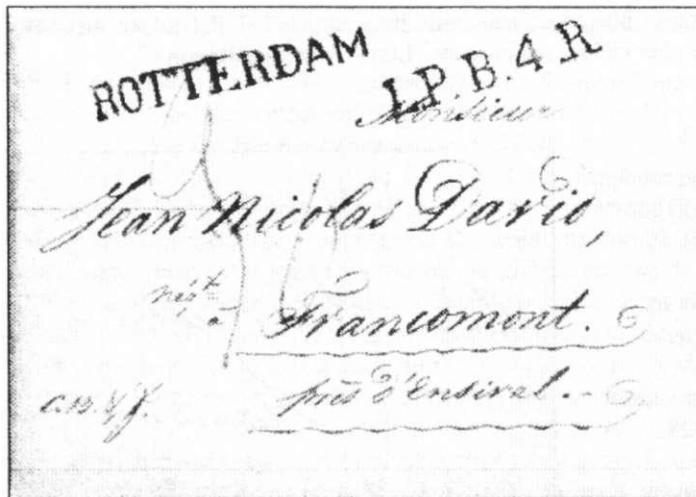 ROTTERDAM
L.P.B.4.R
Monsieur
Jean Nicolas David
nég.t
à Francomont.
près d'Ensival.